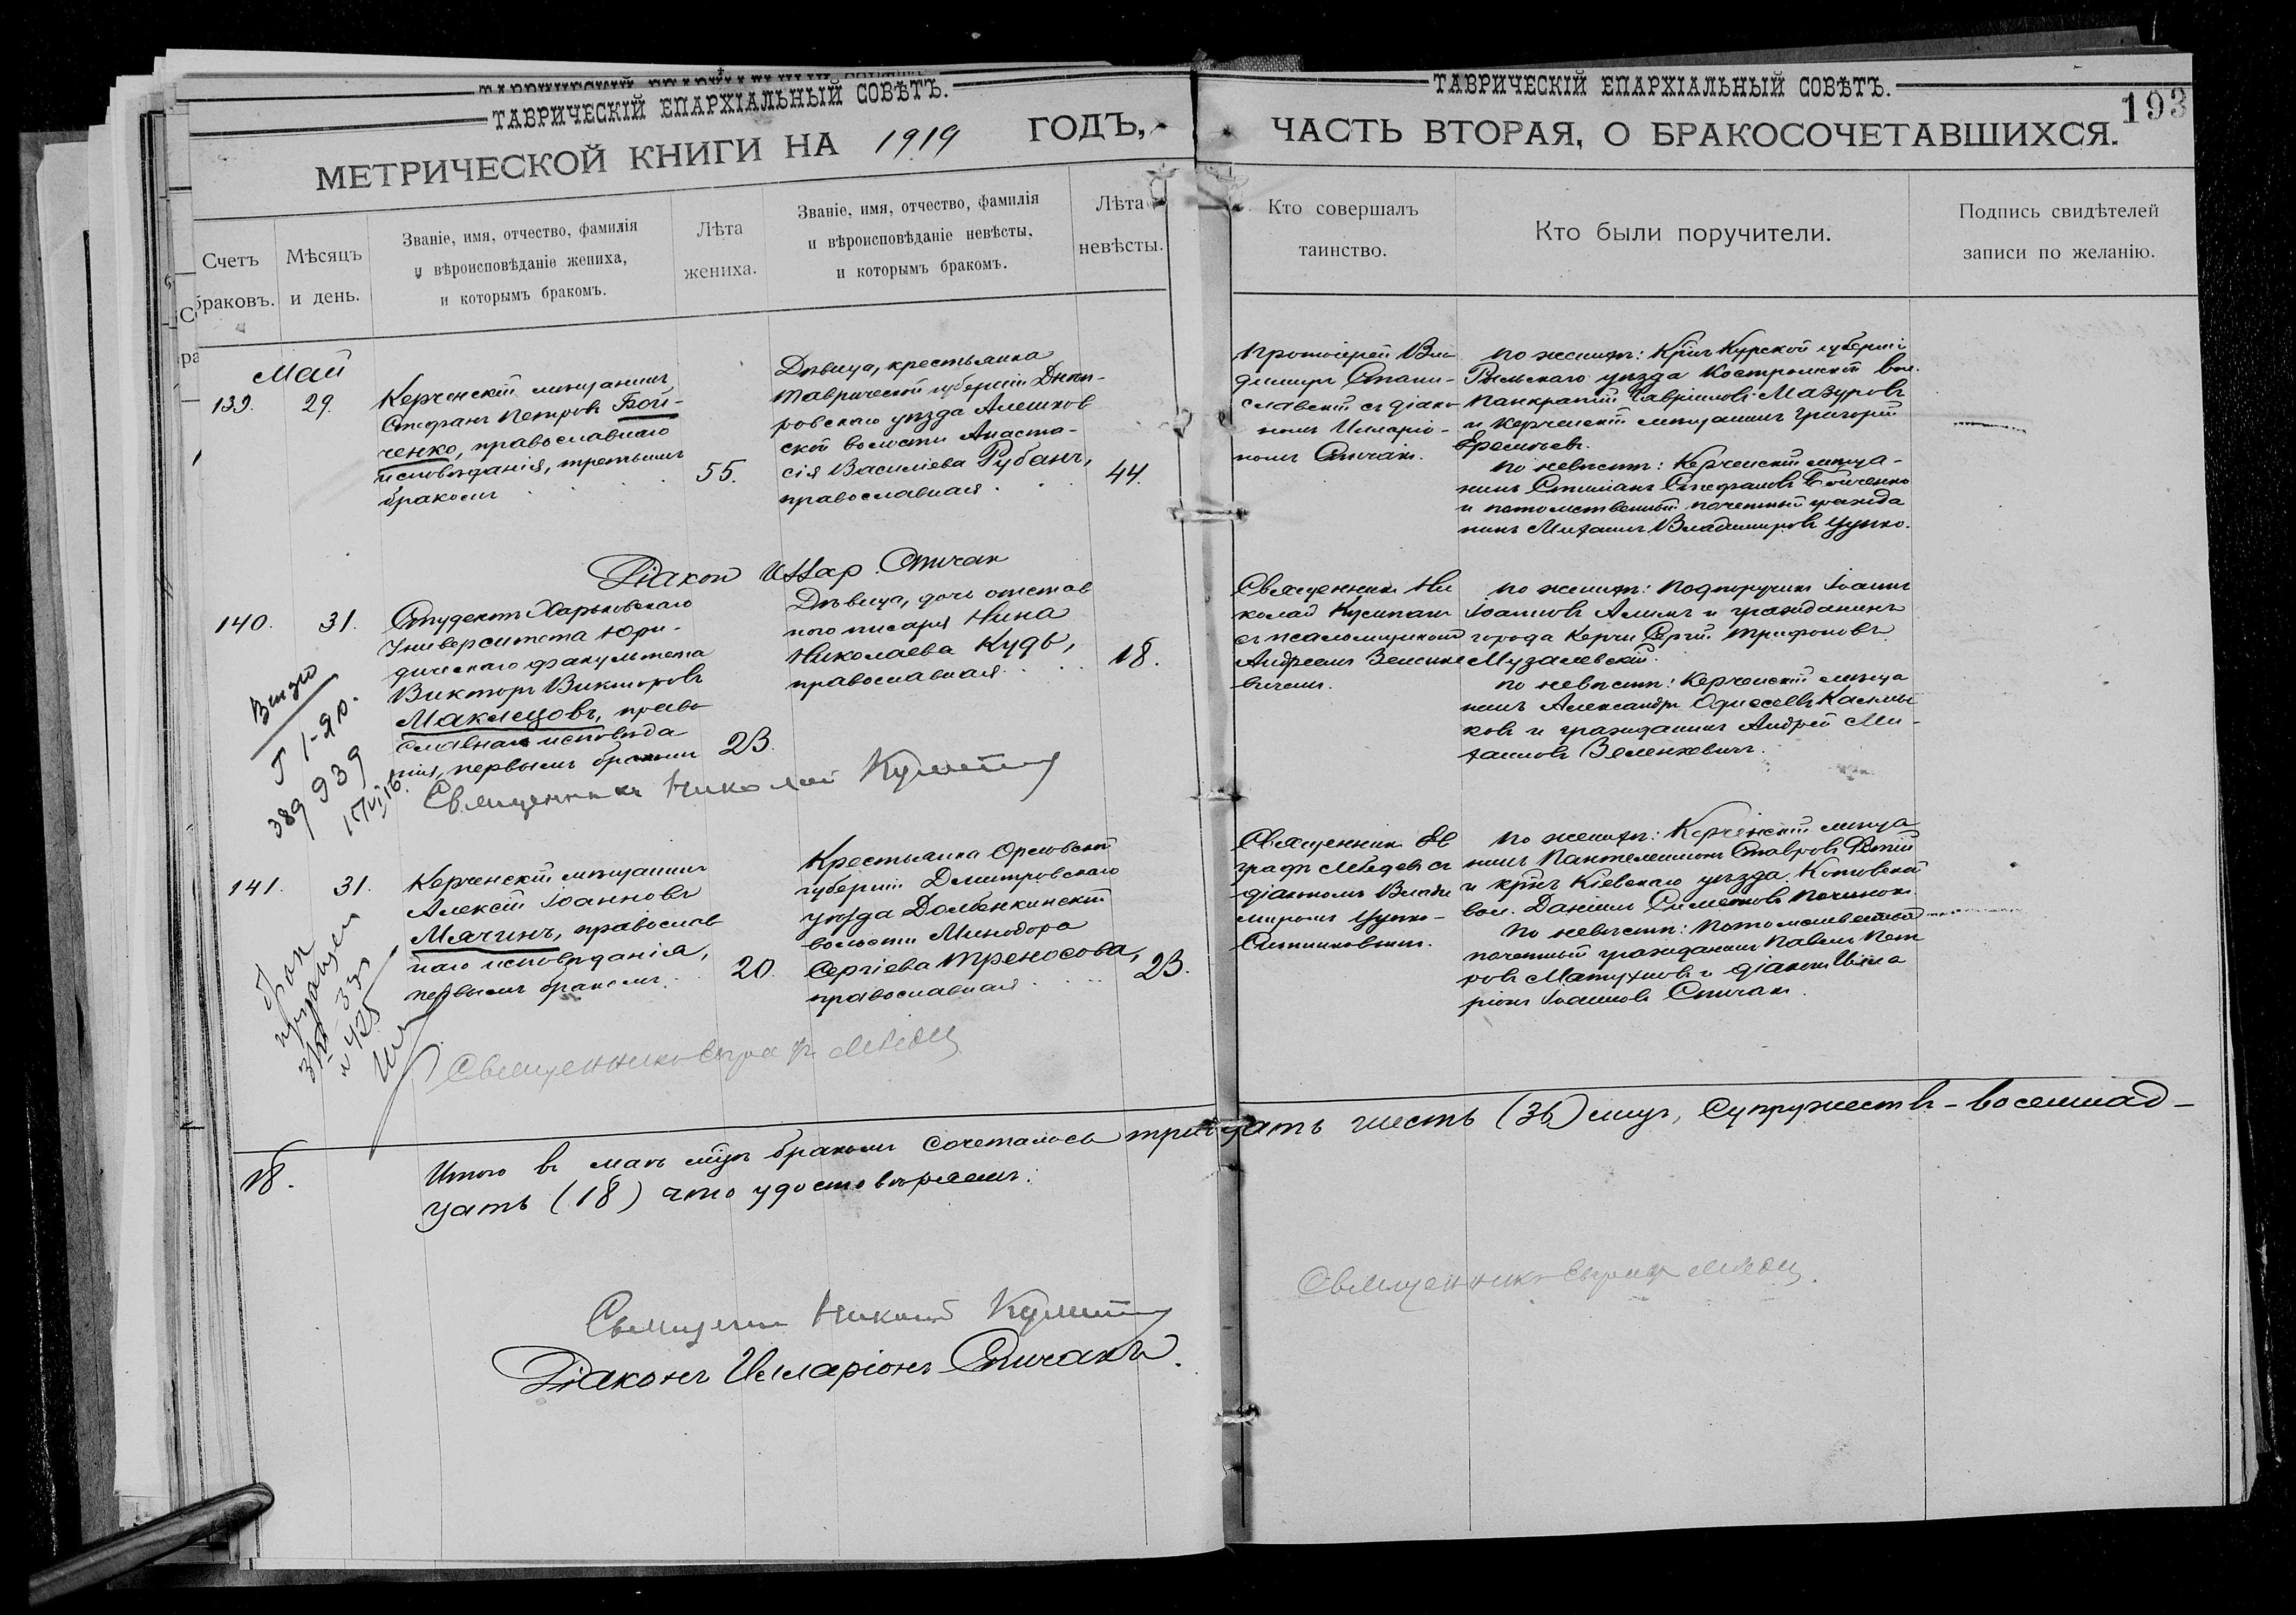 ТАВРИЧЕСКІЙ ЕПАРХІАЛЬНЫЙ СОВѢТЪ.
МЕТРИЧЕСКОЙ КНИГИ НА 1919 ГОДЪ,
Счетъ браковъ.
Мѣсяцъ и день.
Званіе, имя, отчество, фамилія
и вѣроисповѣданіе жениха,
и которымъ бракомъ.
Лѣта
жениха.
Званіе, имя, отчество, фамилія
и вѣроисповѣданіе невѣсты,
и которымъ бракомъ.
Лѣта
невѣсты.
Май
139. 29.
Керченскій мѣщанинъ
Стефанъ Петровъ Бой-
ченко, православнаго
исповѣданія, третьимъ
бракомъ
55.
Дѣвица, крестьянка
Таврической губерніи Днѣп-
ровскаго уѣзда Алешков
ской волости Анаста-
сія Василіева Рубанъ,
православная
44.
Діакон Иллар. Спичак
140. 31.
Студентъ Харьковскаго
Университета Юри-
дическаго факультета
Викторъ Викторовъ
Маклецовъ, право
славнаго исповѣда
нія, первымъ бракомъ
23.
Дѣвица, дочь отстав
ного писаря Нина
Николаева Кудь,
православная
18.
389 939
Священникъ Николай
141. 31.
Керченскій мѣщанинъ
Алексій Іоанновъ
Мячинъ, православ
наго исповѣданія,
первымъ бракомъ.
20.
Крестьянка Орловской
губерніи Дмитровскаго
уѣзда Домбенкинской
волости Минодора
Сергіева Треносова,
православная
23.
брак
Священникъ Евграфъ
18.
Итого въ маѣ мѣсцѣ бракомъ сочеталось тридцать шесть (36) лицъ, супружествъ - восемнад-
цать (18) что удостовѣряемъ:
Николай
Діаконъ Илларіонъ Спичакъ.
ТАВРИЧЕСКІЙ ЕПАРХІАЛЬНЫЙ СОВѢТЪ.
193
ЧАСТЬ ВТОРАЯ, О БРАКОСОЧЕТАВШИХСЯ.
Кто совершалъ
таинство.
Кто были поручители.
Подпись свидѣтелей
записи по желанію.
Протоіерей Вла
диміръ Стани-
славскій съ діако
номъ Илларіо-
номъ Спичак.
по женихѣ: Кр-нъ Курской губерніи
Рыльскаго уѣзда Костромской вол.
Панкратій Гавріиловъ Мазуровъ
и Керченскій мѣщанинъ Григорій
Еремѣевъ.
по невѣстѣ: Керченскій мѣща-
нинъ Стефановъ Бойченко
и потомственный почетный гражда
нинъ Михаилъ Владиміровъ Цупко.
Священник Ни
колай
съ псаломщикомъ
Андреемъ Зеленке
вичемъ.
по женихѣ: Подпоручикъ Іоаннъ
Іоанновъ и гражданинъ
города Керчи Сергій Трифоновъ
Музалевскій.
по невѣстѣ: Керченскій мѣща
нинъ Александръ Калмы
ковъ и гражданинъ Андрей Ми-
хаиловъ Зеленкевичъ.
Священник Ев
графъ съ
діакономъ Влади
миромъ Цупко-
по женихѣ: Керченскій мѣща
нинъ Пантелеимонъ Ставровъ
и кр-нъ Кіевскаго уѣзда
вол. Даніилъ Симеоновъ
По невѣстѣ: Потомственный
почетный гражданинъ Павелъ Пет
ровъ и діаконъ Илла
ріонъ Іоанновъ Спичакъ.
Священникъ Евграфъ